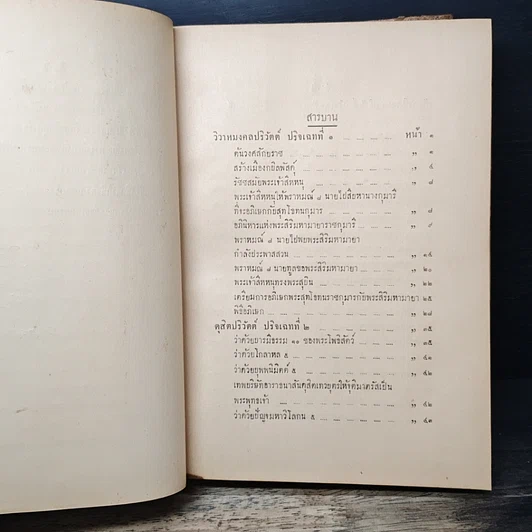 สารบาน
วิวาหมงคลปริวัตต์ ปริจเฉทที่ ๑ หน้า ๑
ต้นวงศสักยราช ,, ๑
สร้างเมืองกบิลพัสดุ์ ,, ๕
รัชชสมัยพระเจ้าสิหหนุ ,, ๗
พระเจ้าสิหหนุให้พราหมณ์ ๘ นายไปสืบหานางกุมารี
ที่จะอภิเษกกับสุทโธทนกุมาร ,, ๗
อภินิหารแห่งพระสิริมหามายาราชกุมารี ,, ๙
พราหมณ์ ๘ นายไปพบพระสิริมหามายา
กำลังประพาสสวน ,, ๑๕
พราหมณ์ ๘ นายทูลขอพระสิริมหามายา ,, ๒๐
พระเจ้าสิหหนุทรงพระสุบิน ,, ๒๒
เตรียมการอภิเษกพระสุทโธทนราชกุมารกับพระสิริมหามายา ,, ๒๕
พิธีอภิเษก ,, ๒๗
ดุสิตปริวัตต์ ปริจเฉทที่ ๒ ,, ๓๕
ว่าด้วยธารมีธรรม ๑๐ ของพระโพธิสัตว์ ,, ๓๕
ว่าด้วยโกลาหล ๕ ,, ๔๒
ว่าด้วยบุพพนิมิตต์ ๕ ,, ๔๒
เทพยนิกัรอาราธนาสันดุสิตเทวบุตรให้จุติมาตรัสเป็น
พระพุทธเจ้า ,, ๔๒
ว่าด้วยปัญจมหาวิโลกน ๕ ,, ๔๓